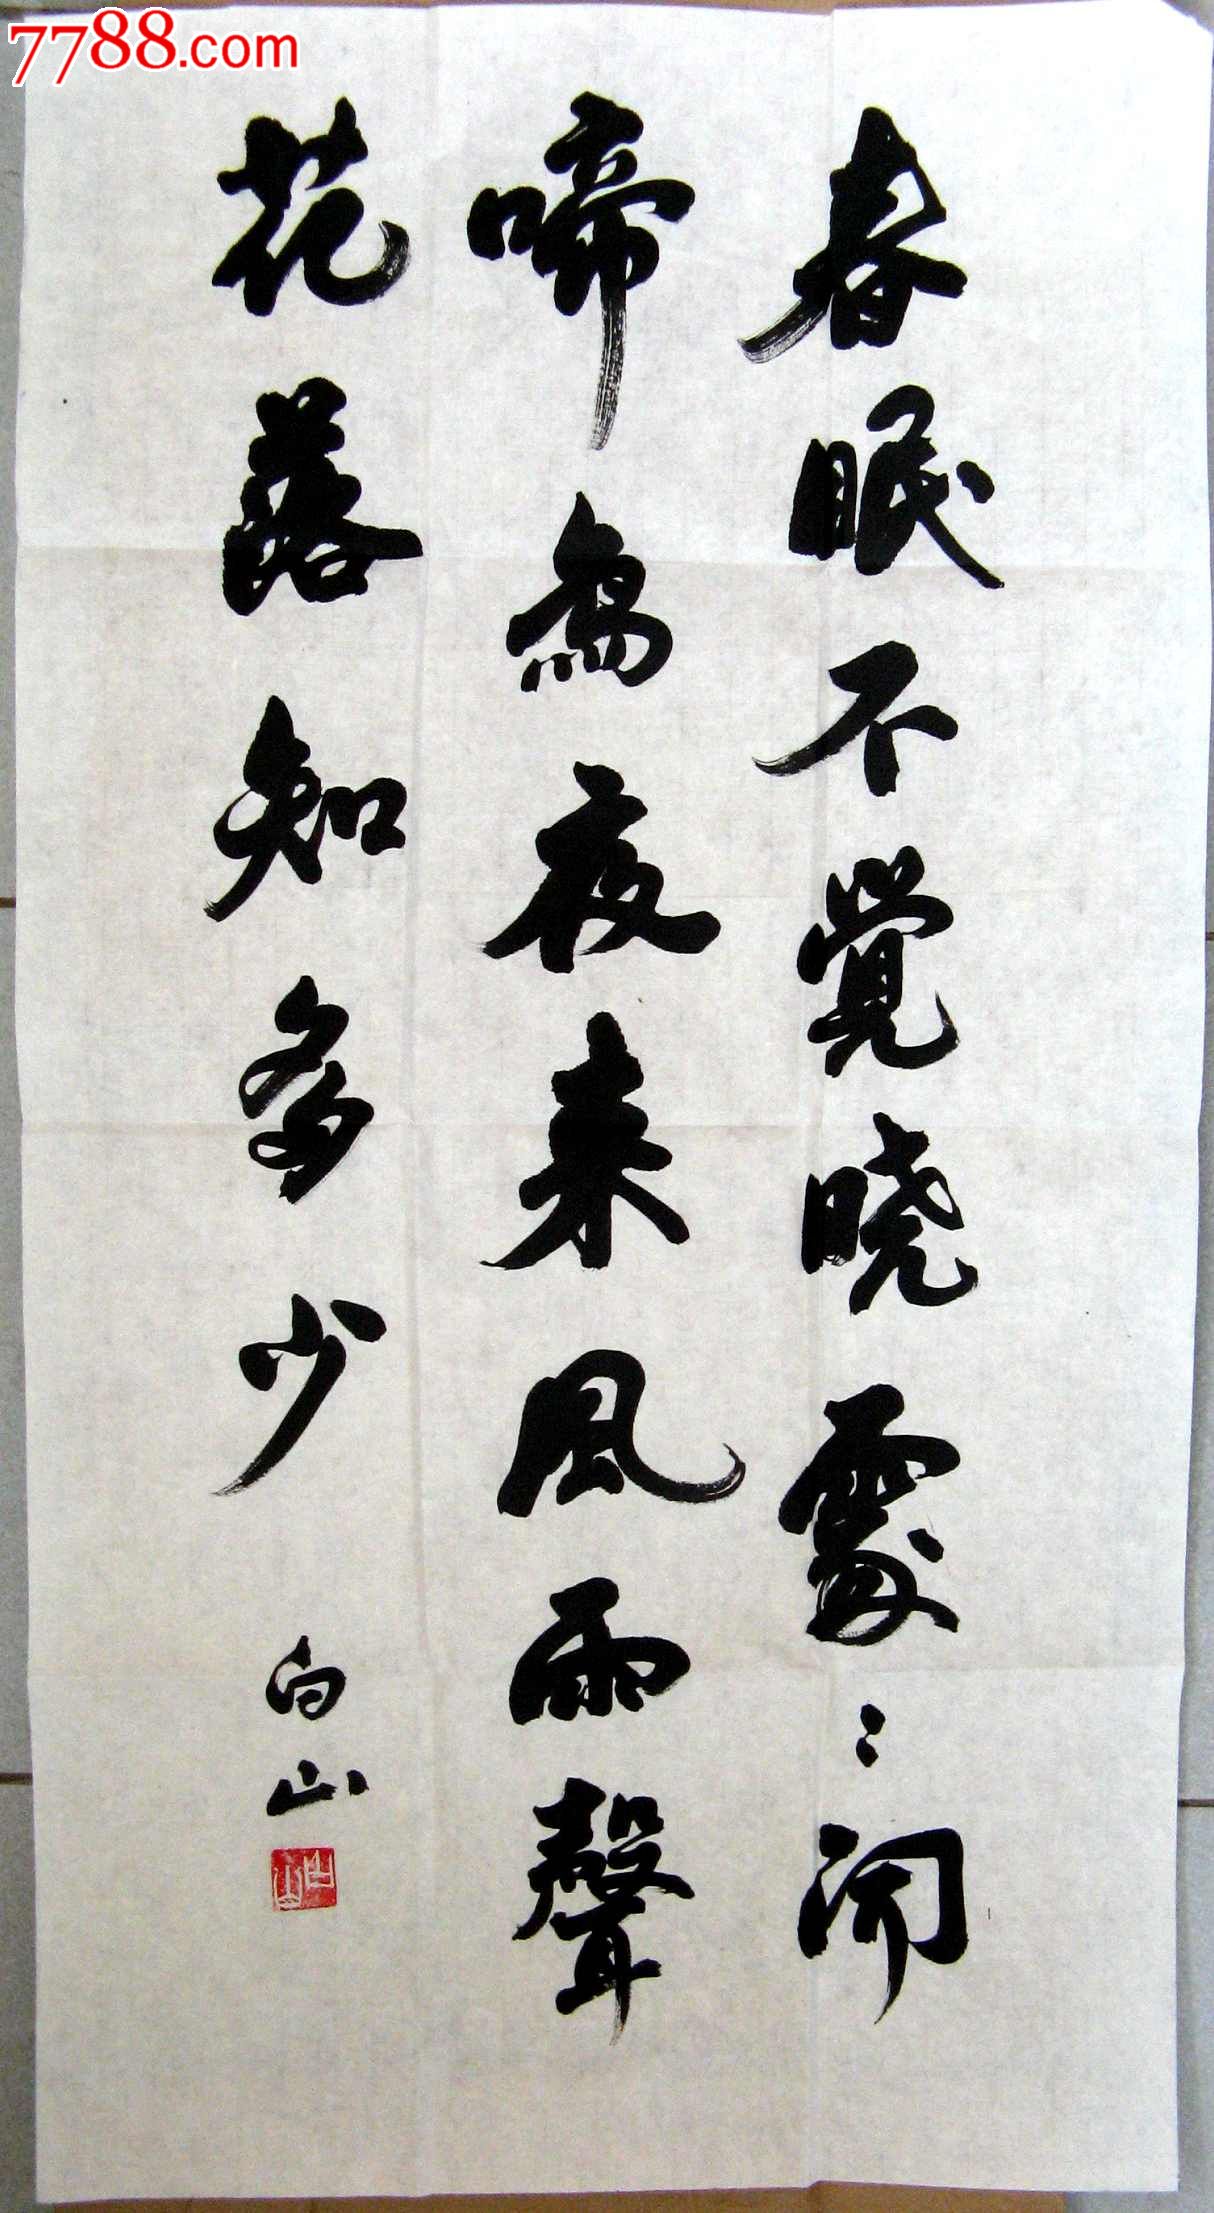 7788.com
春眠不覺晓處〻闻
啼鳥夜来風雨聲
花落知多少
白山
白山